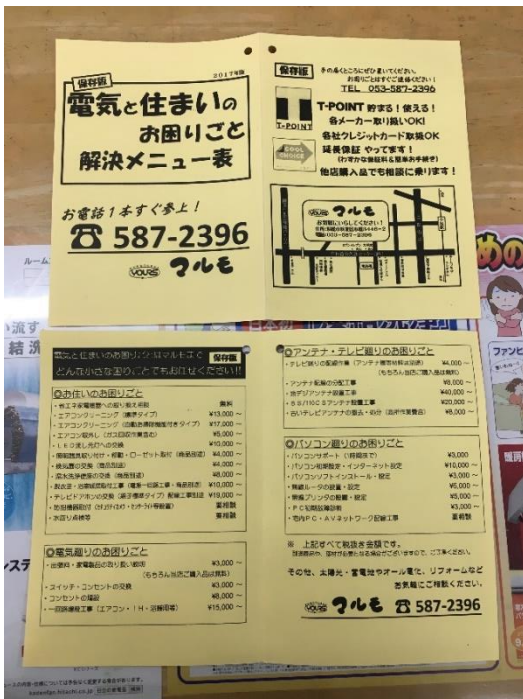 保存版
2017年版
電気と住まいの
お困りごと
解決メニュー表
お電話1本すぐ参上!
☎ 587-2396
YOURS マルモ
保存版
手の届くところにぜひ置いてください。
お困りごとはすぐご連絡ください!
TEL 053-587-2396
T-POINT
T-POINT 貯まる!使える!
各メーカー取り扱いOK!
各社クレジットカード取扱OK
COOL CHOICE
延長保証 やってます!
(わずかな保証料&簡単お手続き)
他店購入品でも相談に乗ります!
YOURS マルモ
お気軽にいらしてください!
電気と住まいのお困りごとはマルモまで
どんな小さな困りごとでもお任せください!!
保存版
◎お住いのお困りごと
・省エネ家電買替への取り替え相談 無料
・エアコンクリーニング(標準タイプ) ¥13,000 ~
・エアコンクリーニング(自動お掃除機能付きタイプ) ¥17,000 ~
・エアコン取外し(ガス回収作業含む) ¥5,000 ~
・LED流し元灯への交換 ¥10,000 ~
・簡易照明取り付け・移動・ローゼット取付(商品別途) ¥4,000 ~
・換気扇の交換(商品別途) ¥4,000 ~
・温水洗浄便座の交換(商品別途) ¥8,000 ~
・脱衣室・浴室暖房取付工事(電源一般工事・商品別途) ¥10,000 ~
・テレビドアホンの交換(親子標準タイプ)配線工事別途 ¥19,000 ~
・防犯機器取付 要相談
・水回り点検等 要相談
◎電気廻りのお困りごと
・出張料・家電製品の取り扱い説明 ¥3,000 ~
(もちろん当店ご購入品は無料)
・スイッチ・コンセントの交換 ¥3,000 ~
・コンセントの増設 ¥8,000 ~
・一回路増設工事(エアコン・IH・浴暖用等) ¥15,000 ~
◎アンテナ・テレビ廻りのお困りごと
・テレビ廻りの配線作業(アンテナ線等材料は別途) ¥4,000 ~
(もちろん当店ご購入品は無料)
・アンテナ配線の分配工事 ¥8,000 ~
・地デジアンテナ設置工事 ¥40,000 ~
・BS/110CSアンテナ設置工事 ¥20,000 ~
・古いテレビアンテナの撤去・処分(高所作業費含) ¥8,000 ~
◎パソコン廻りのお困りごと
・パソコンサポート(1時間まで) ¥3,000
・パソコン初期設定・インターネット設定 ¥10,000 ~
・パソコンソフトインストール・設定 ¥3,000 ~
・無線ルータの設置・設定 ¥5,000 ~
・無線プリンタの設置・設定 ¥5,000 ~
・PC初期故障診断 ¥3,000 ~
・宅内PC・AVネットワーク配線工事 要相談
※ 上記すべて税抜き金額です。
別途部品や、部材が必要となる場合がございますので、ご了承ください。
その他、太陽光・蓄電池やオール電化、リフォームなど
お気軽にご相談ください。
YOURS マルモ ☎ 587-2396